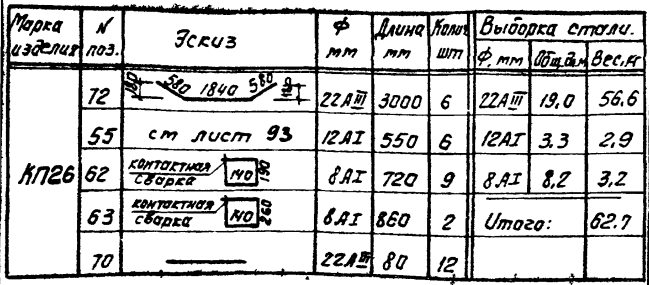 Марка изделия N поз. Эскиз Ф мм Длина мм Колич шт Выборка стали.
Ф, мм Общ дл Вес, кг
72 580 1840 580 22АIII 3000 6 22АIII 19,0 56,6
55 см лист 93 12АI 550 6 12АI 3.3 2,9
КП26 62 контактная сварка 140 190 8АI 720 9 8АI 8,2 3,2
63 контактная сварка 140 260 8АI 860 2 Итого: 62.7
70 22АIII 80 12